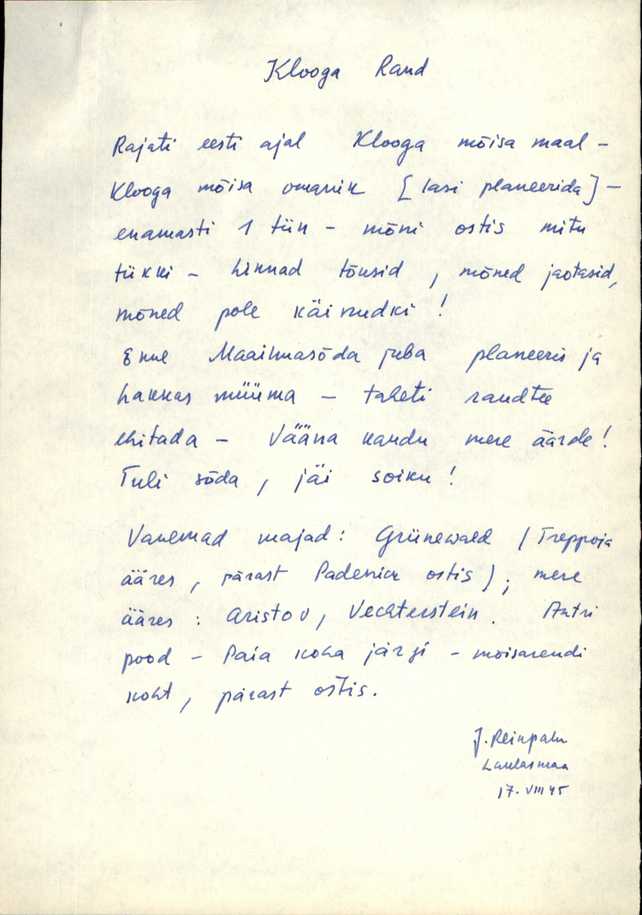 Klooga Rand
Rajati eesti ajal Klooga mõisa maal –
Klooga mõisa omanik [lasi planeerida] –
enamasti 1 tiin – mõni ostis mitu
tükki – hinnad tõusid, mõned jaotasid,
mõned pole käinudki!
Enne Maailmasõda juba planeeris ja
hakkas müüma – taheti raudtee
ehitada – Vääna kaudu mere äärde!
Tuli sõda, jäi soiku!
Vanemad majad: Grünewald (Treppoja
ääres, pärast Padenick ostis); mere
ääres: Aristov, Vechterstein. Antri
pood – Paia koha järgi – mõisarendi
koht, pärast ostis.
J. Reinpalu
Laulasmaa
17. VIII 45